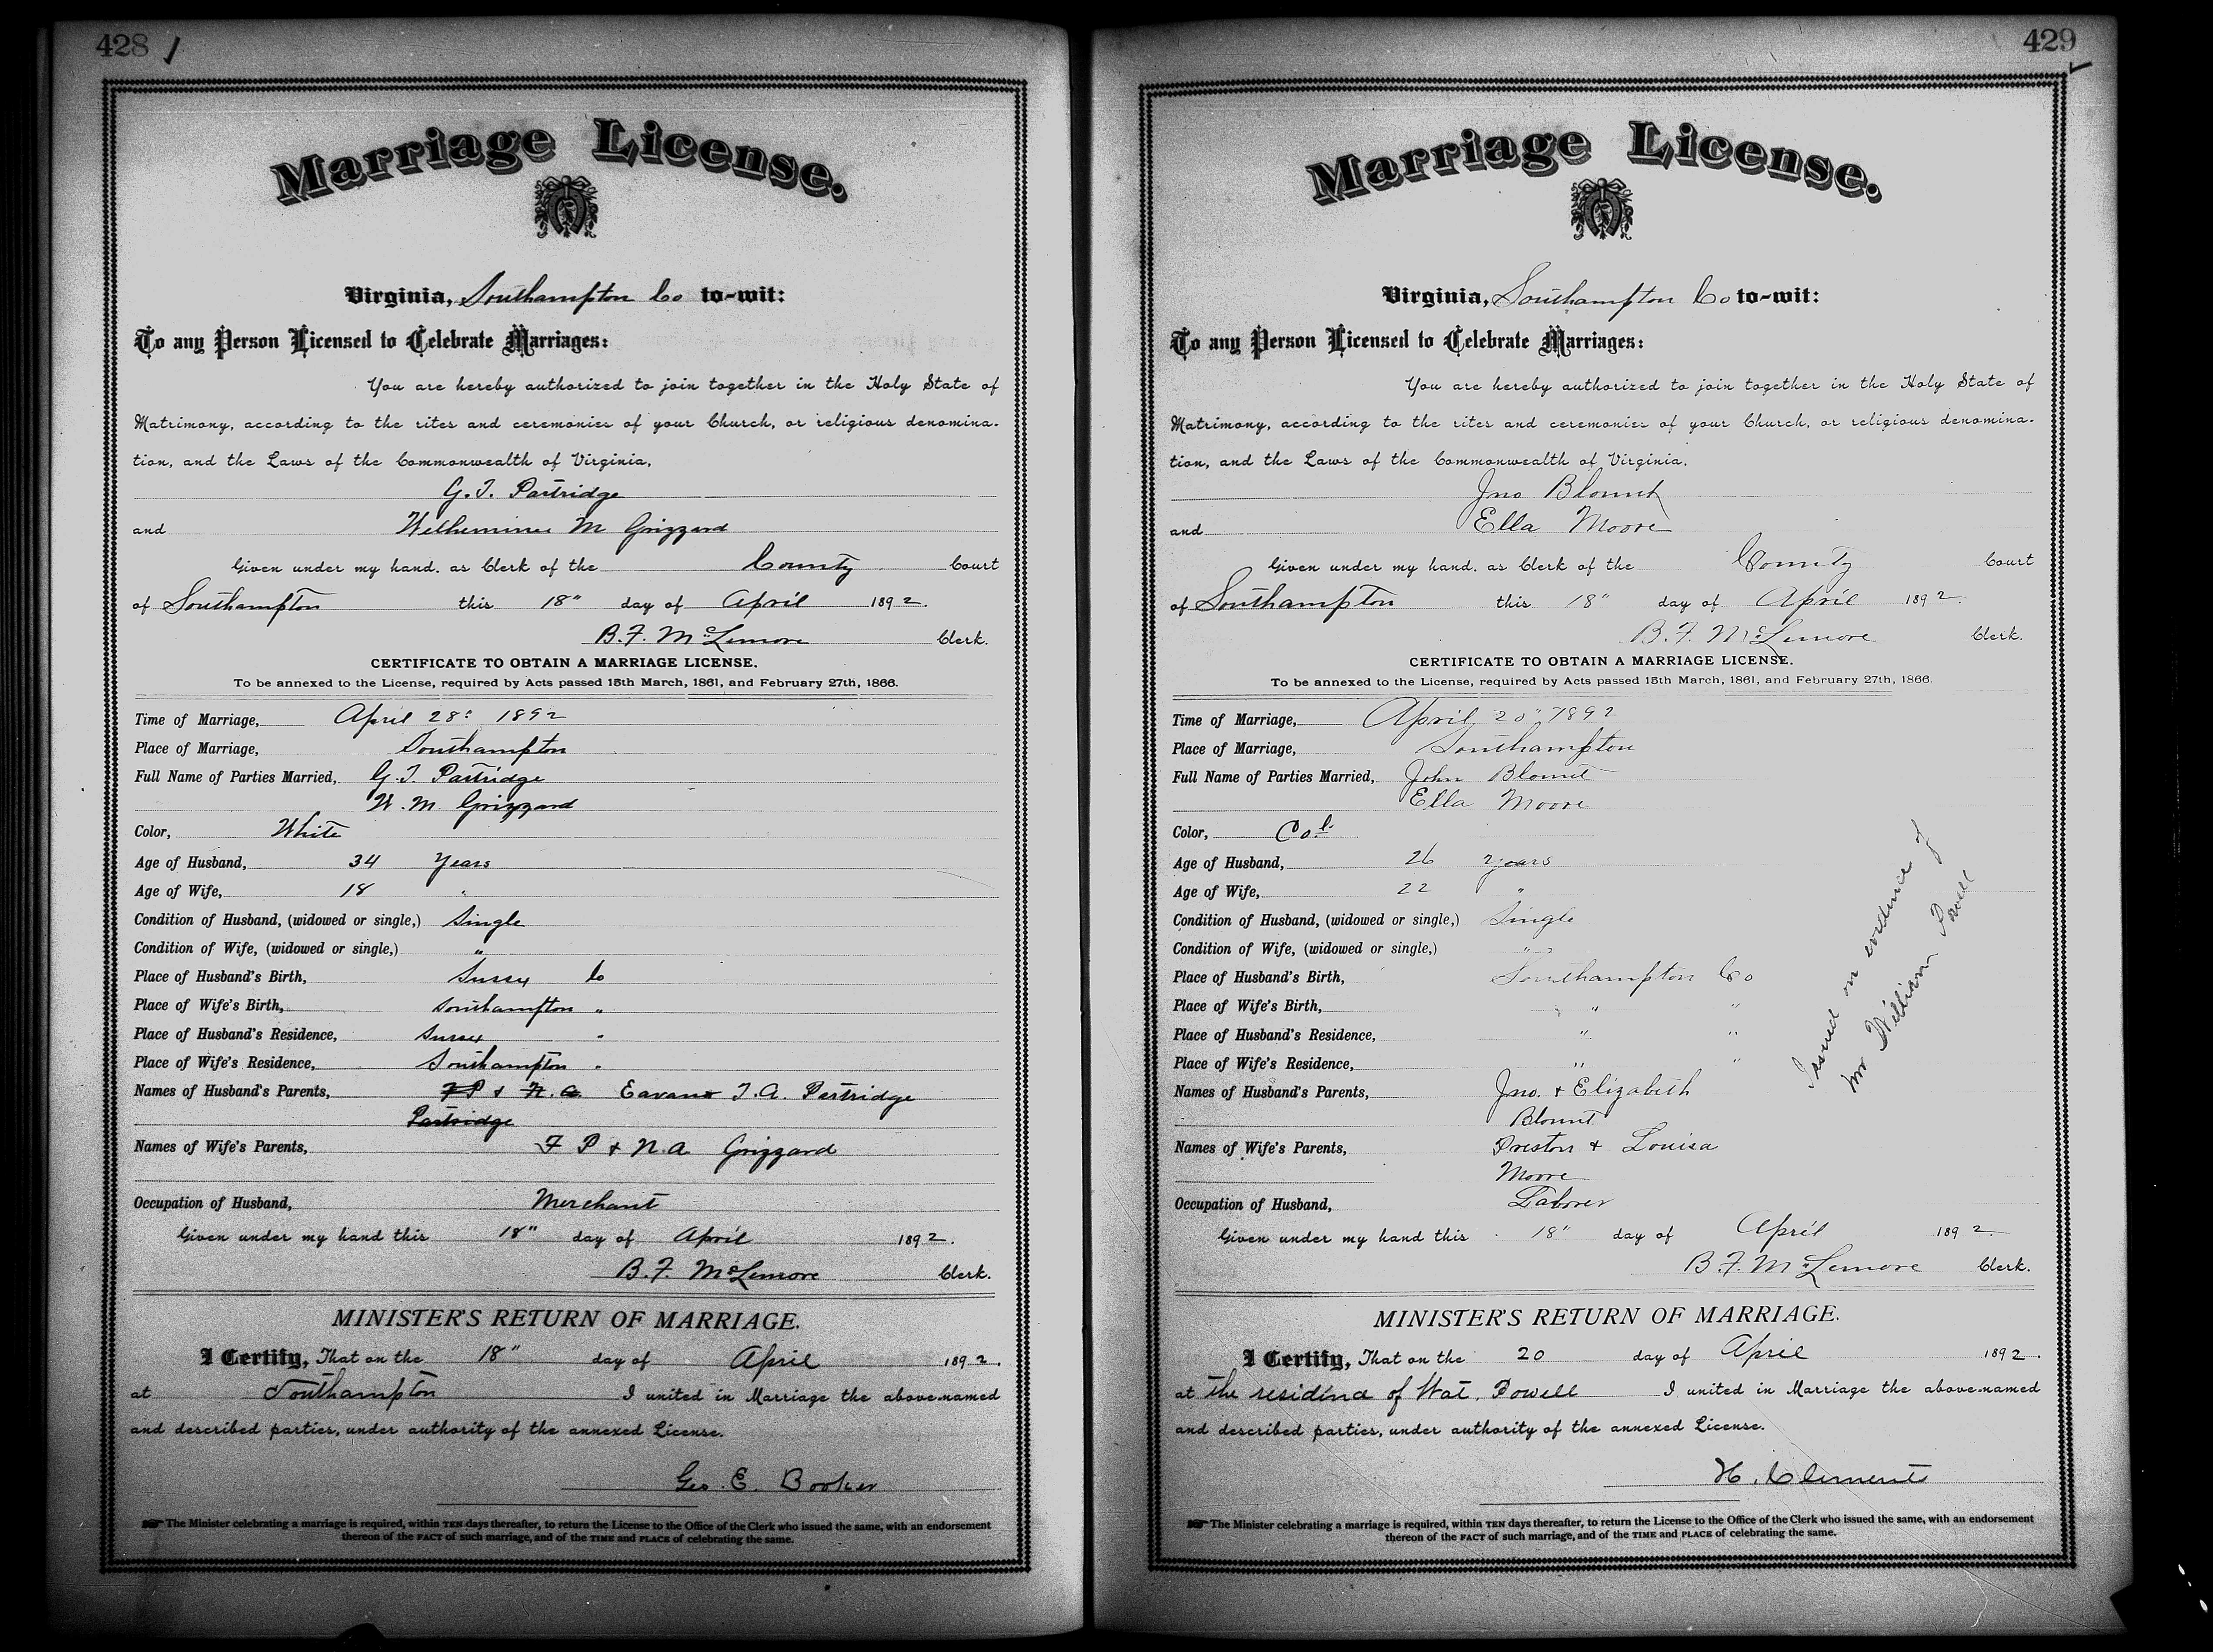 428
Marriage License.
Virginia, Southampton Co to-wit:
To any Person Licensed to Celebrate Marriages:
You are hereby authorized to join together in the Holy State of
Matrimony, according to the rites and ceremonies of your Church, or religious denomina-
tion, and the Laws of the Commonwealth of Virginia,
G. T. Partridge
and Wilhemina M Grizzard
Given under my hand, as Clerk of the County Court
of Southampton this 18" day of April 1892.
B. F. McLemore Clerk.
CERTIFICATE TO OBTAIN A MARRIAGE LICENSE.
To be annexed to the License, required by Acts passed 15th March, 1861, and February 27th, 1866.
Time of Marriage, April 28: 1892
Place of Marriage, Southampton
Full Name of Parties Married, G. T. Partridge
W. M. Grizzard
Color, White
Age of Husband, 34 Years
Age of Wife, 18 "
Condition of Husband, (widowed or single,) Single
Condition of Wife, (widowed or single,) "
Place of Husband's Birth, Sussex Co
Place of Wife's Birth, Southampton "
Place of Husband's Residence, Sussex "
Place of Wife's Residence, Southampton "
Names of Husband's Parents, F P & N. A. T. A. Partridge
Partridge
Names of Wife's Parents, F P & N. A Grizzard
Occupation of Husband, Merchant
Given under my hand this 18" day of April 1892.
B. F. McLemore Clerk.
MINISTER'S RETURN OF MARRIAGE.
I Certify, That on the 18" day of April 1892.
at Southampton I united in Marriage the above-named
and described parties, under authority of the annexed License.
Geo. E. Booker
The Minister celebrating a marriage is required, within TEN days thereafter, to return the License to the Office of the Clerk who issued the same, with an endorsement
thereon of the FACT of such marriage, and of the TIME and PLACE of celebrating the same.
429
Marriage License.
Virginia, Southampton Co to-wit:
To any Person Licensed to Celebrate Marriages:
You are hereby authorized to join together in the Holy State of
Matrimony, according to the rites and ceremonies of your Church, or religious denomina-
tion, and the Laws of the Commonwealth of Virginia,
Jno Blount
and Ella Moore
Given under my hand, as Clerk of the County Court
of Southampton this 18" day of April 1892.
B. F. McLemore Clerk.
CERTIFICATE TO OBTAIN A MARRIAGE LICENSE.
To be annexed to the License, required by Acts passed 15th March, 1861, and February 27th, 1866.
Time of Marriage, April 20" 1892
Place of Marriage, Southampton
Full Name of Parties Married, John Blount
Ella Moore
Color, Col.
Age of Husband, 26 years
Age of Wife, 22 "
Condition of Husband, (widowed or single,) Single
Condition of Wife, (widowed or single,) "
Place of Husband's Birth, Southampton Co
Place of Wife's Birth, " "
Place of Husband's Residence, " "
Place of Wife's Residence, " "
Names of Husband's Parents, Jno. & Elizabeth
Blount
Names of Wife's Parents, Preston & Louisa
Moore
Occupation of Husband, Laborer
Given under my hand this 18" day of April 1892.
B. F. McLemore Clerk.
Issued on evidence of
Mr William Powell
MINISTER'S RETURN OF MARRIAGE.
I Certify, That on the 20 day of April 1892.
at the residence of Wat. Powell I united in Marriage the above-named
and described parties, under authority of the annexed License.
H. Clements
The Minister celebrating a marriage is required, within TEN days thereafter, to return the License to the Office of the Clerk who issued the same, with an endorsement
thereon of the FACT of such marriage, and of the TIME and PLACE of celebrating the same.